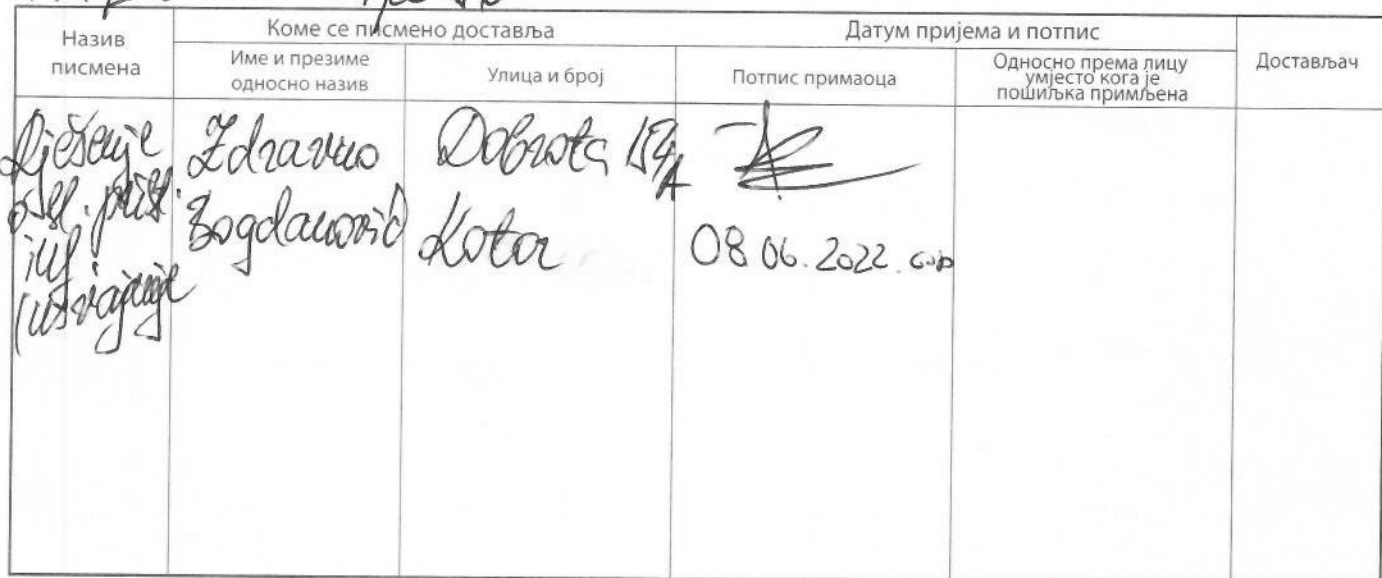 Назив писмена
Коме се писмено доставља
Датум пријема и потпис
Достављач
Име и презиме односно назив
Улица и број
Потпис примаоца
Односно према лицу умјесто кога је пошиљка примљена
Rješenje
Zdravko
Dobrota 154/A
Bogdanović
Kotor
08.06.2022.